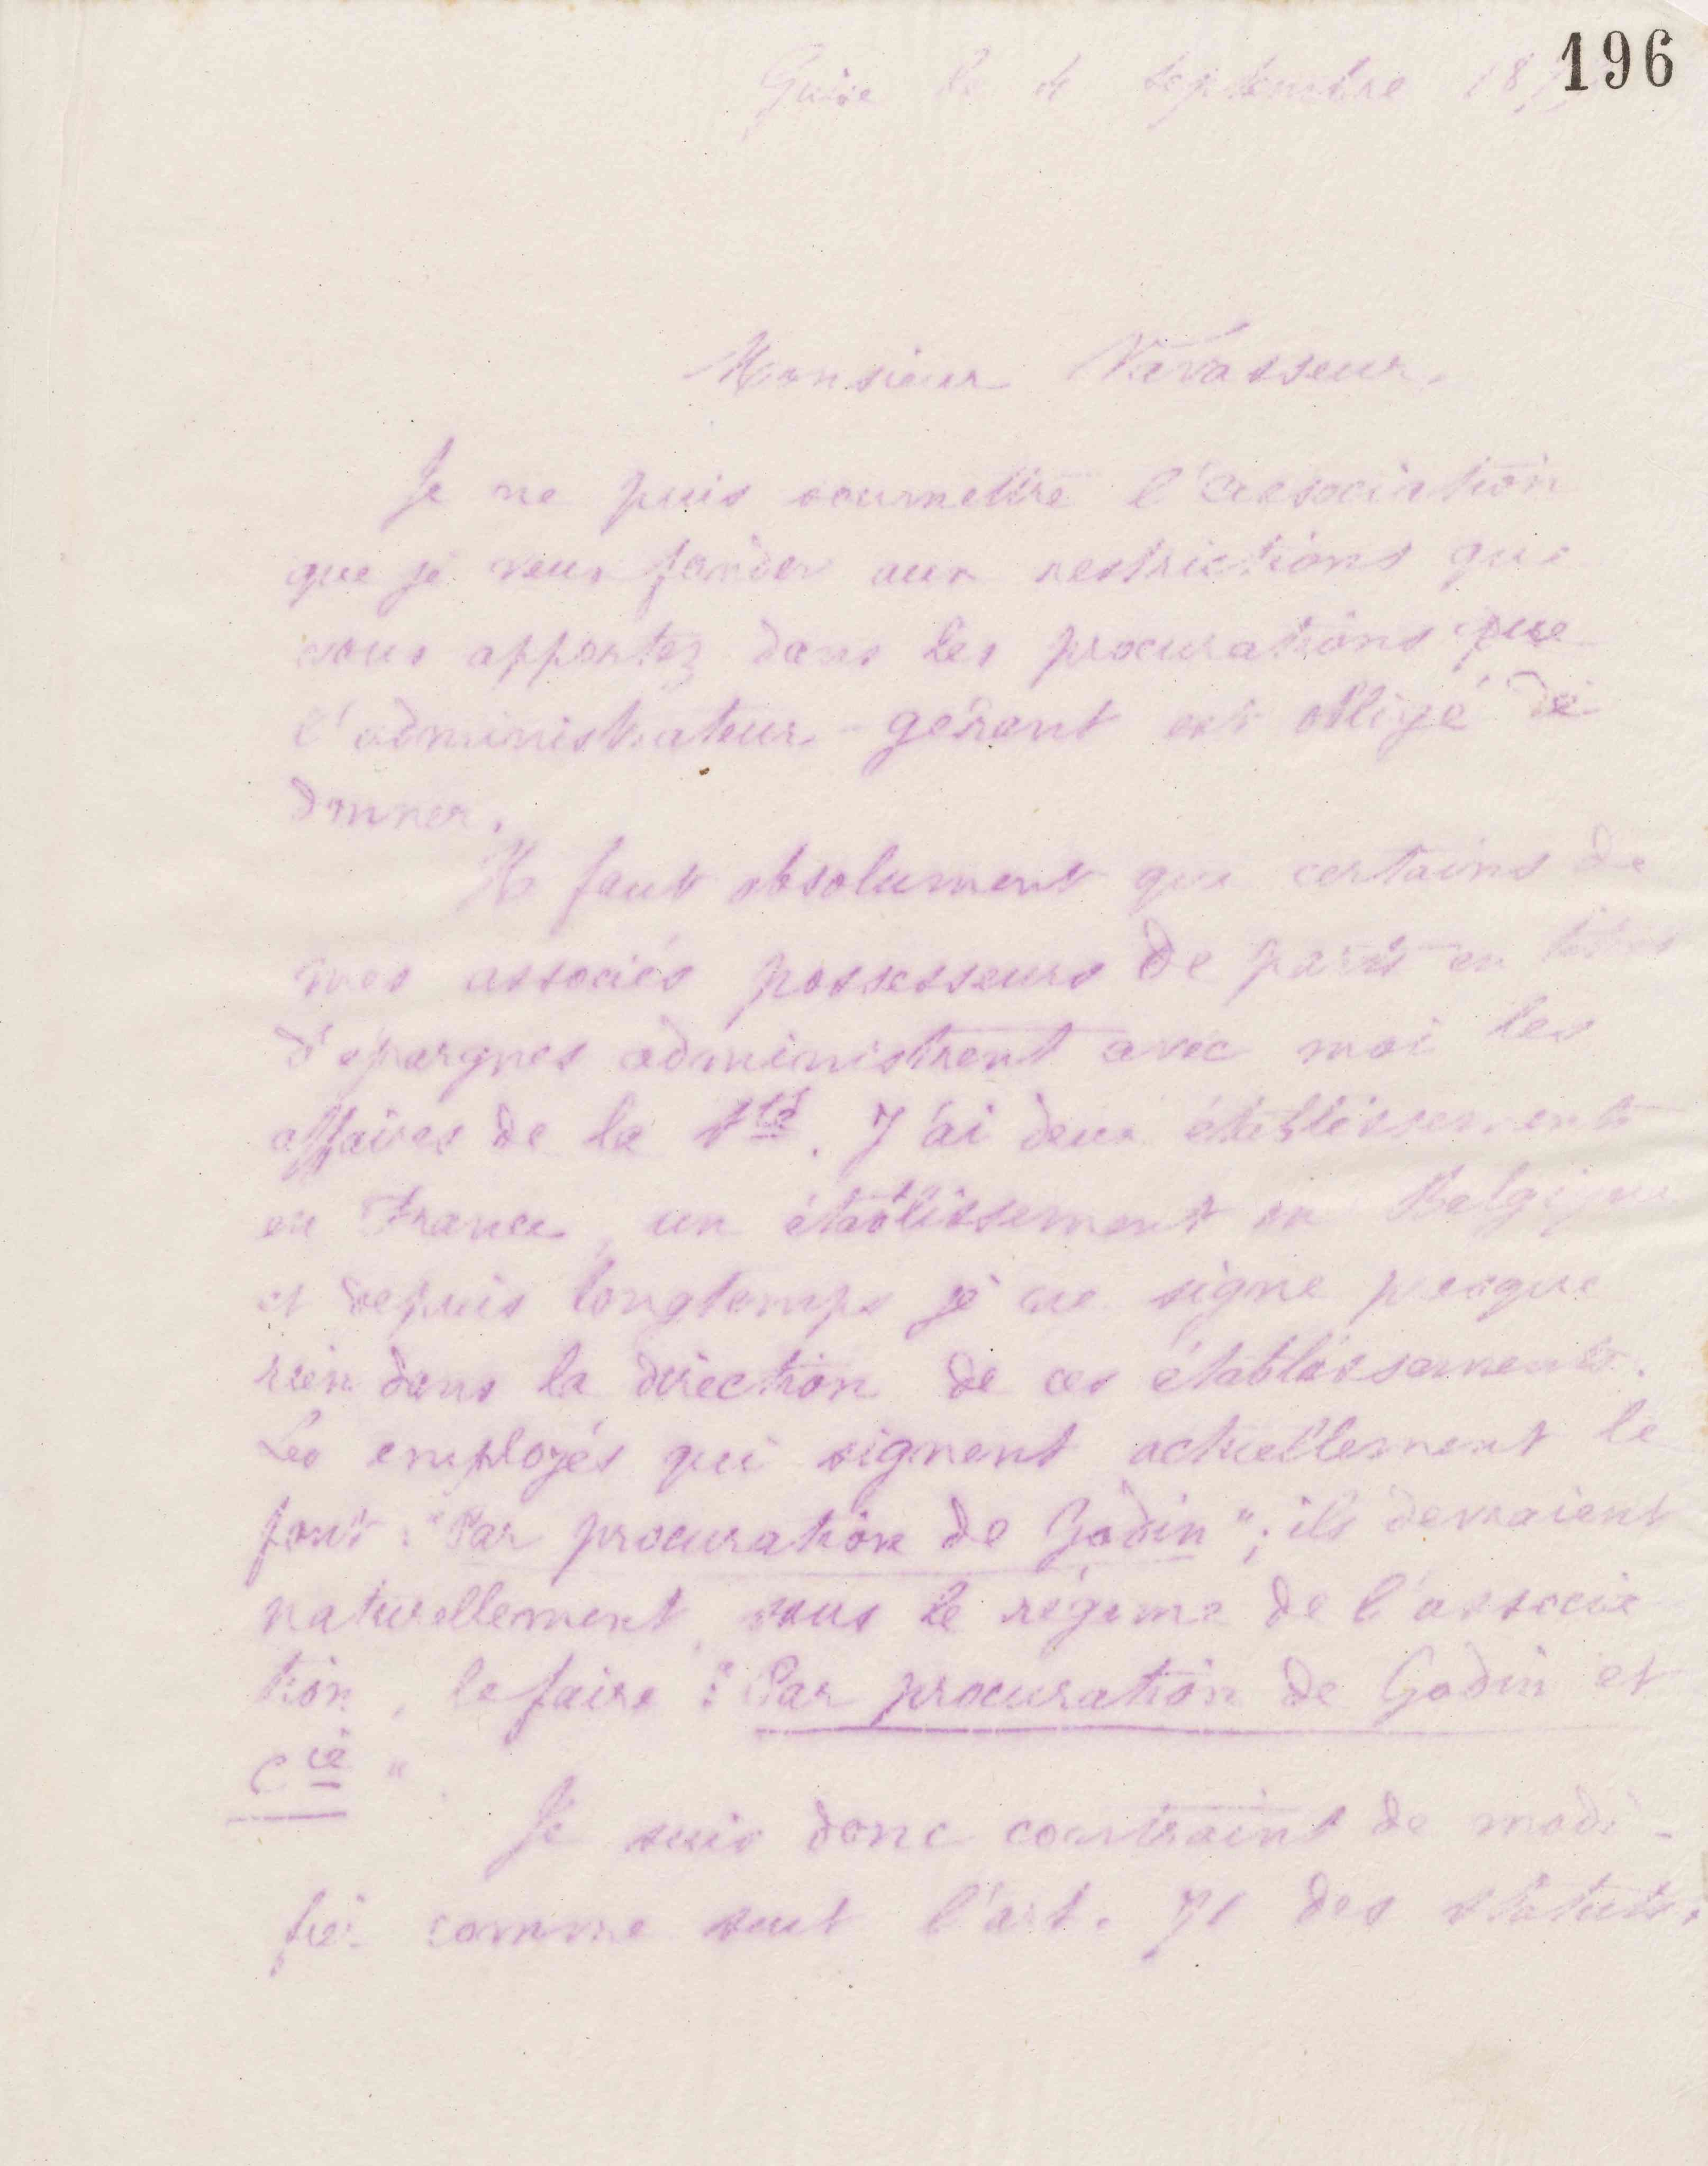 196
Guise le 4 septembre 18
Monsieur Vavasseur,
Je ne puis soumettre l'association
que je veux fonder aux restrictions que
vous apportez dans les procurations que
l'administrateur-gérant est obligé de
donner.
Il faut absolument que certains de
mes associés possesseurs de parts en titres
d'épargnes administrent avec moi les
affaires de la Sté. J'ai deux établissements
en France, un établissement en Belgique
et depuis longtemps je ne signe presque
rien dans la direction de ces établissements.
Les employés qui signent actuellement le
font : "Par procuration de Godin"; ils devraient
naturellement, sous le régime de l'associa
tion, le faire : "Par procuration de Godin et
Cie".
Je suis donc contraint de modi-
fier comme suit l'art. 71 des statuts.